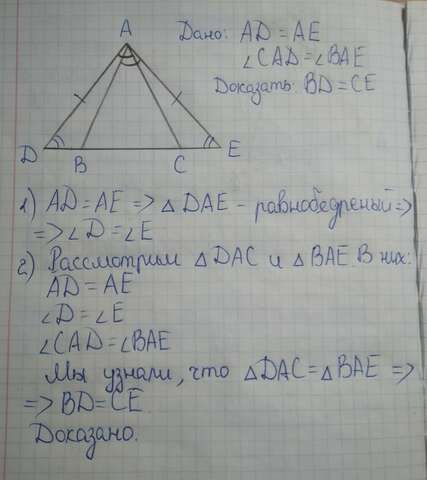 A
Дано: AD = AE
∠CAD = ∠BAE
Доказать: BD = CE
D B C E
1) AD = AE => △DAE - равнобедреный =>
=> ∠D = ∠E
2) Рассмотрим △DAC и △BAE. В них:
AD = AE
∠D = ∠E
∠CAD = ∠BAE
Мы узнали, что △DAC = △BAE =>
=> BD = CE.
Доказано.